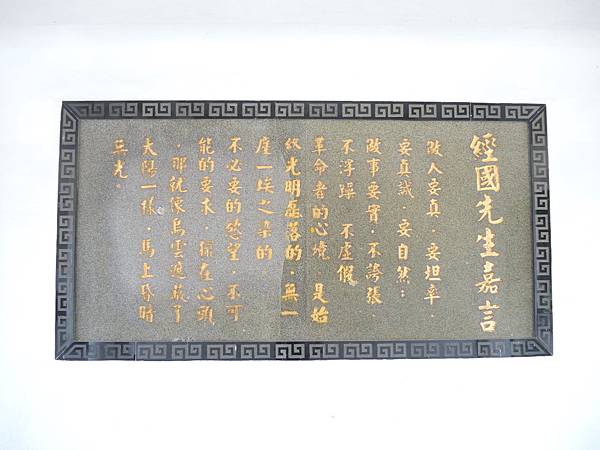 經國先生嘉言
做人要真．要坦率．
要真誠．要自然；
做事要實．不誇張．
不浮躁．不虛假。
革命者的心境．是始
終光明磊落的．無一
塵一埃之染的。
不必要的慾望．不可
能的要求．擺在心頭
．那就像烏雲遮蔽了
太陽一樣．馬上昏暗
無光。